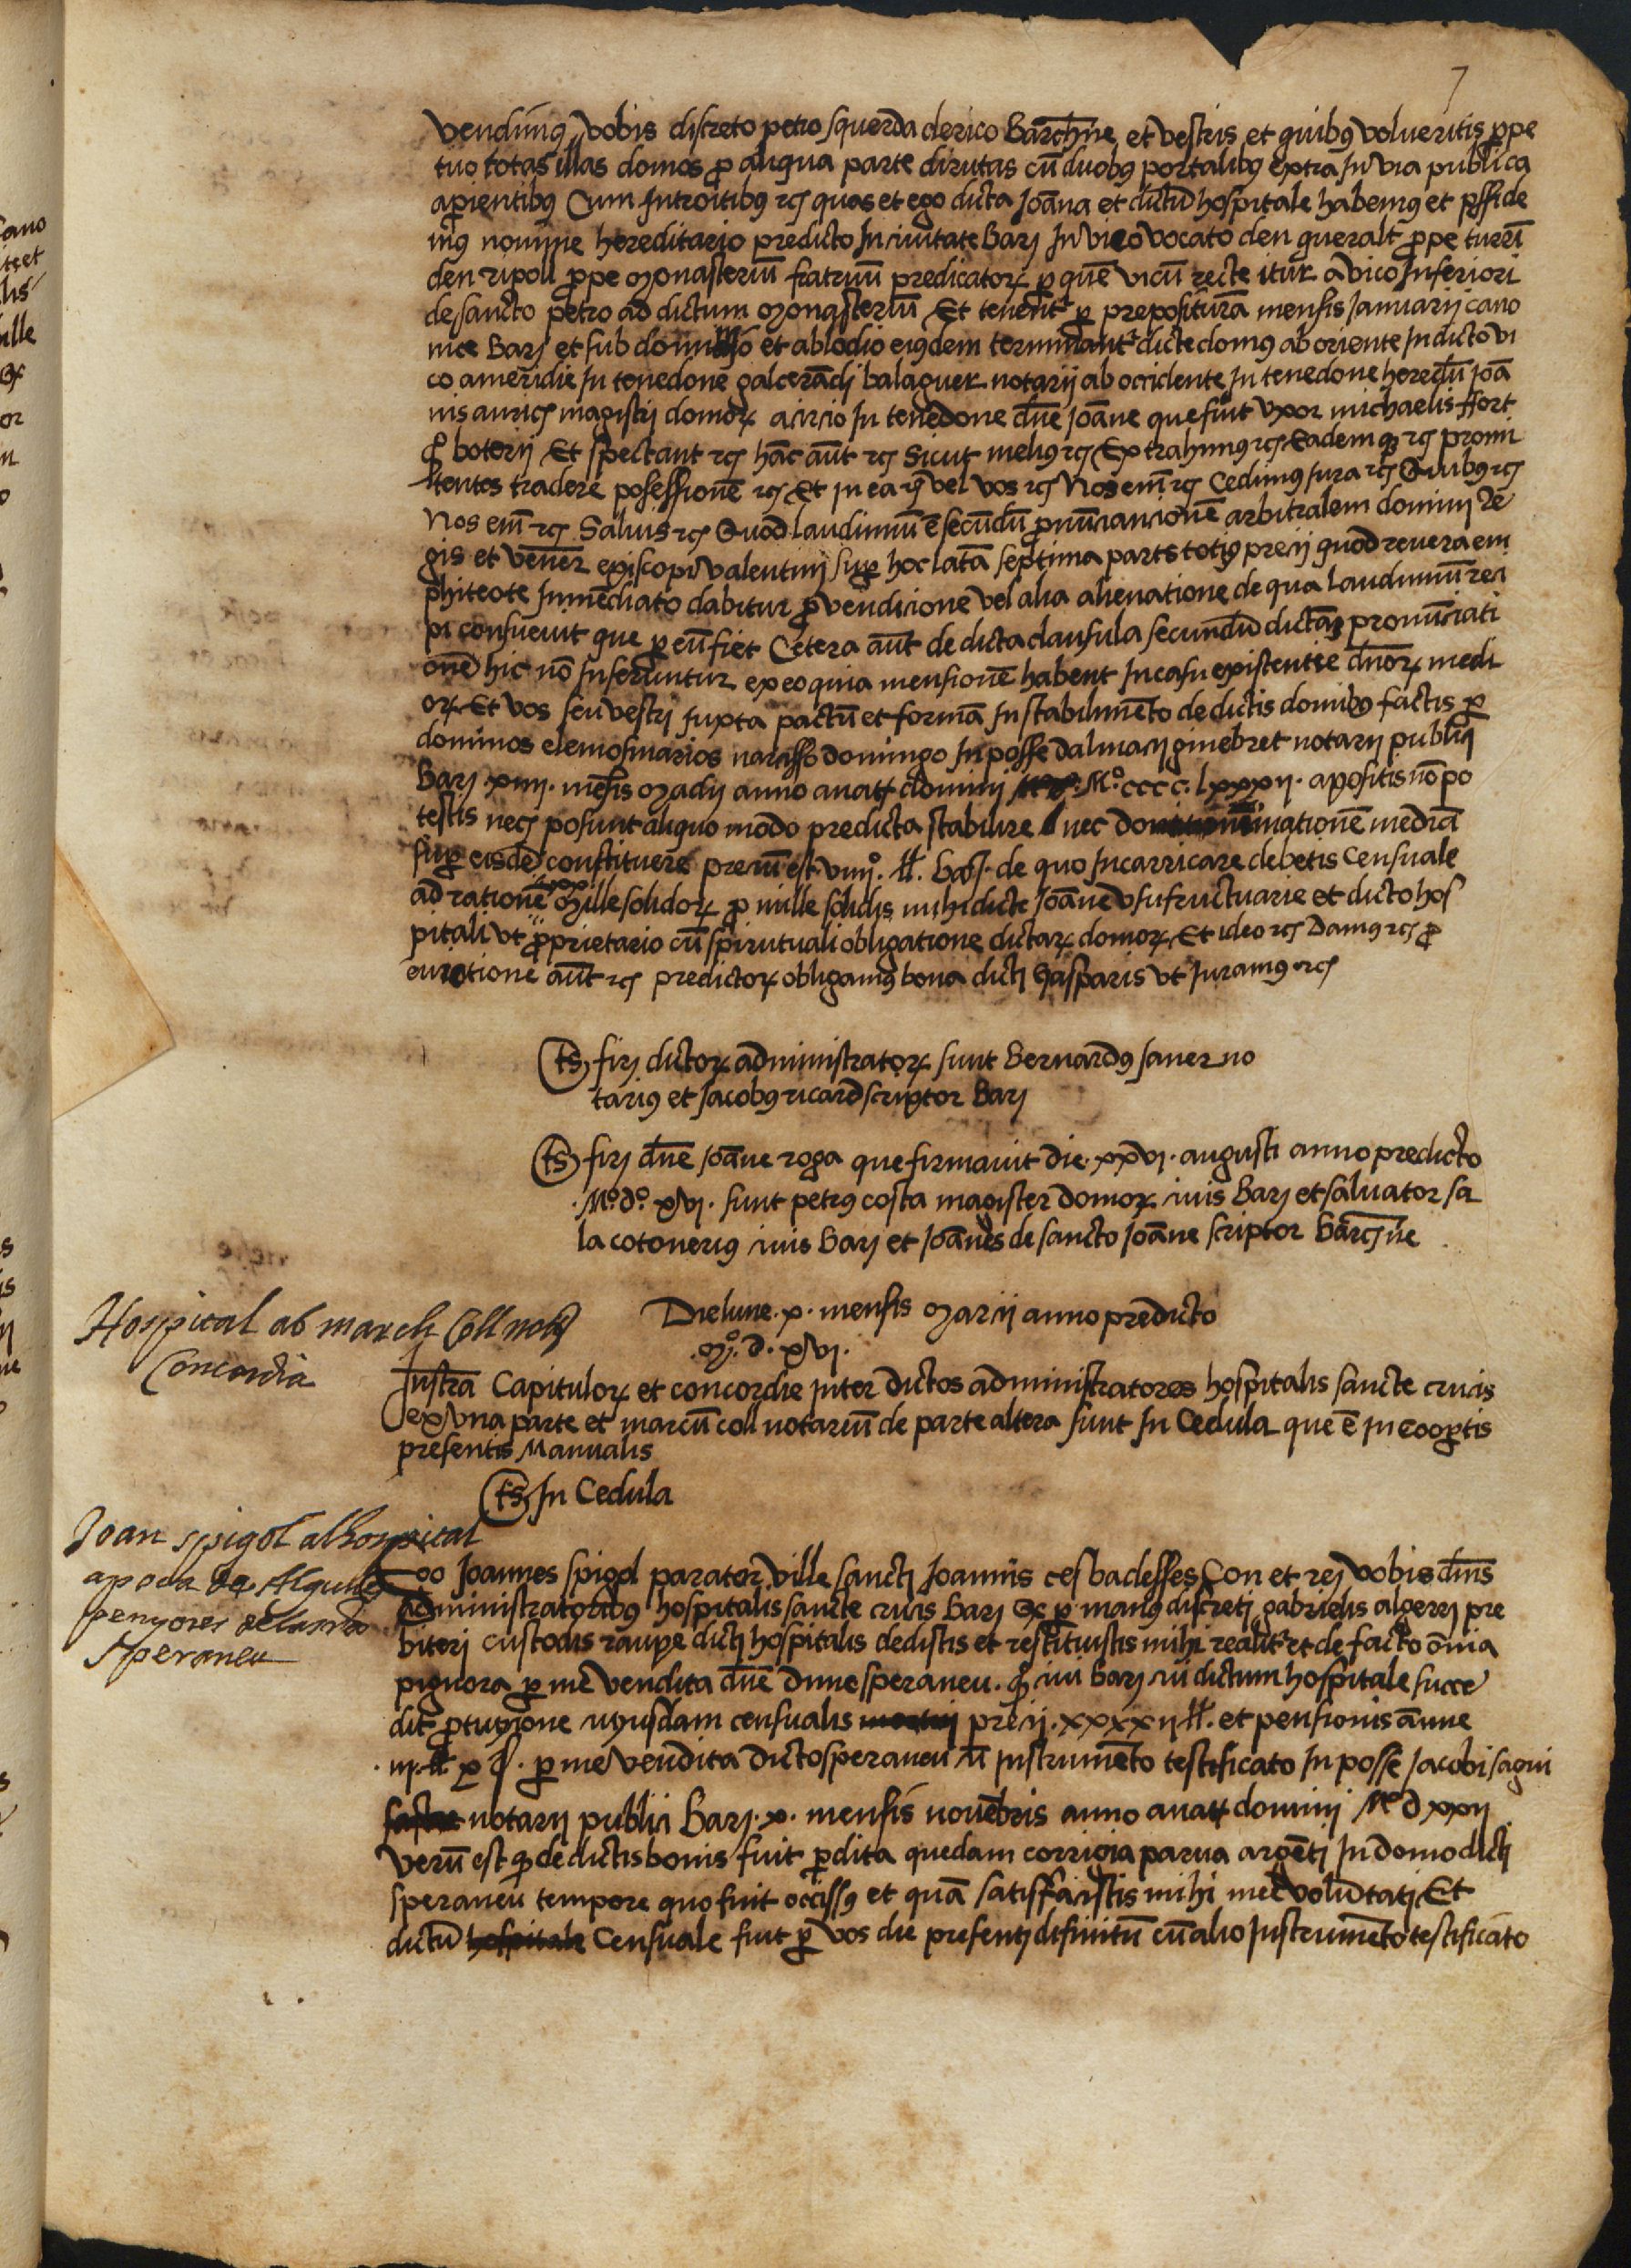 7
vendimus vobis discreto petro squerda clerico Barchne et vestris et quibus volueritis ppe
tuo totas illas domos p aliqua parte dirutas cu duobus portalibus extra in via publica
apientibus Cum introitibus rcs quas et ego dicta Joana et dictu hospitale habemus et posside
mus nomine hereditario predicto in civitate Barj in vico vocato den queralt ppe turri
den ripoll ppe monasteriu fratruu predicator p que vicu recte itur a vico inferiori
de sancto petro ad dictum monasteriu Et tenent p prepositura mensis Januarij cano
nice Barj et sub dominio et alodio eiusdem terminant dicte domus ab oriente in dicto vi
co a meridie in tenedone galcerandj balaguer notarij ab occidente in tenedone heredu Joa
nis magistrj domor a circio in tenedone dne Joane que fuit uxor michaelis ffort
boterij Et spectant rcs hac aut rcs Sicut melius rcs Extrahimus rcs Eadem rcs promi
ttentes tradere possessione rcs Et in ea vel vos rcs Nos em rcs Cedimus jura rcs Quibus rcs
Nos em rcs Salvis rcs Quod laudimiu e secundu pnunciancione arbitralem dominj Re
gis et vener episcopi valentinj sup hoc lata septima parts totius precij quod revera em
phiteote inmediato dabitur p vendicione vel alia alienatione de qua laudimiu reci
pi consuevit que p eu fiet Cetera aut de dicta clausula secundu dicta pronunciati
one hic no inseruntur ex eo quia mensione habent in casu existentie dnor medi
or Et vos seu vestrj juxta pactu et forma in stabilimento de dictis domibus factis p
dominos elemosinarios narcisso domingo in posse dalmacij ginebret notarij publici
Barj xiiij. mensis madij anno a natt dominj Mº cccc. lxxxij. apositis no po
testis necs posunt aliquo modo predicta stabilire nec dominationem media
sup eisde constituere preciu est viiijº. ll. Bar. de quo incarricare debetis Censuale
ad ratione mille solidor p mille solidis mihi dicte Joane usufructuarie et dicto hos
pitali ut pprietario cu spirutuali obligatione dictar domor Et ideo rcs Damus rcs p
evictione aut rcs predictor obligamus bona dictj Gasparis ut juramus rcs
ts firj dictor administrator sunt Bernardus saner no
tarius et Jacobus ricard scriptor Barj
ts firj dne Joane roga que firmavit die. xxvi. augusti anno predicto
Mº. dº. xvi. sunt petrus costa magister domor civis Barj et salvator sa
la cotonerius civis Barj et Joanes de sancto Joane scriptor Barcs ne
Hospital ab march Coll nots
Concordia
Die lune. x. mensis marcij anno predicto
mº. d. xvi.
Instra Capitulor et concordie inter dictos administratores hospitalis sancte crucis
ex una parte et marcu coll notariu de parte altera sunt In Cedula que e in cooptis
presentis Manualis
ts In Cedula
Joan spigol al hospital
apoca de Algunes
penyores
Speraneu
Ego Joannes spigol parator ville sanctj Joannis ces badesses Con et rej vobis dnis
administratoribus hospitalis sancte crucis Barj p manus discretj gabrielis algerrj pre
biterj custodis raupe dictj hospitalis dedistis et restituistis mihi realit et de facto omia
pignora p me vendita dne speraneu. civi Barj cui dictum hospitale succe
dit censualis precij. xxxxij ll. et pensionis anne
iij. ll x s. p me vendita dicto speraneu cu instrumento testificato in posse Jacobi
notarij publici Barj. x. mensis novebris anno a natt dominj Mº d xxij
veru est de dictis bonis fuit pdita quedam corrigia parva argetj in domo dictj
speraneu tempore quo fuit occissus et qua satisffacistis mihi mee voluntatj Et
dictu hospitale Censuale fuit p vos die presentj difinitu cu alio instrumento testificato